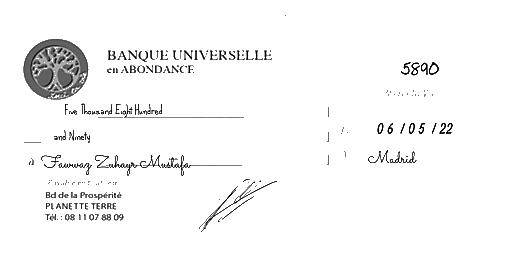 BANQUE UNIVERSELLE
en ABONDANCE
5890
Five Thousand Eight Hundred
and Ninety
06/05/22
à Fawwaz Zuhayr Mustafa
Madrid
Bd de la Prospérité
PLANETTE TERRE
Tél. : 08 11 07 88 09